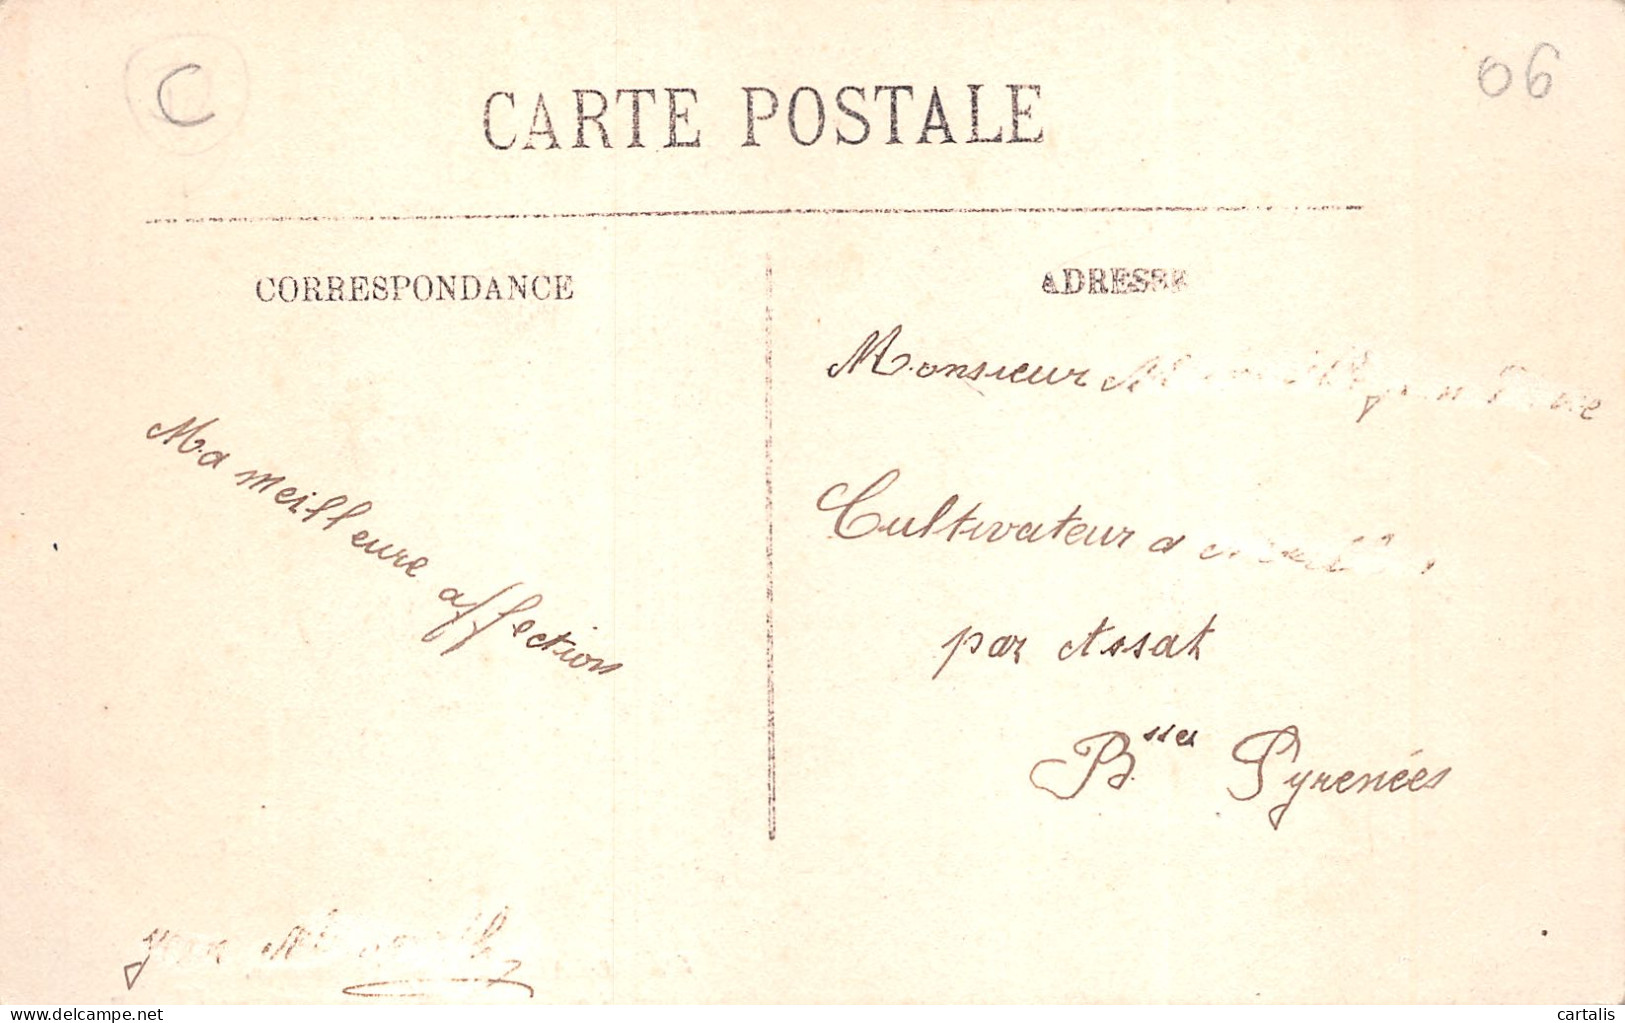 C
06
CARTE POSTALE
CORRESPONDANCE
ADRESSE
Monsieur
Cultivateur a
par Assat
Bsses Pyrenées
Ma meilleure affection
Jean
www.delcampe.net
cartalis